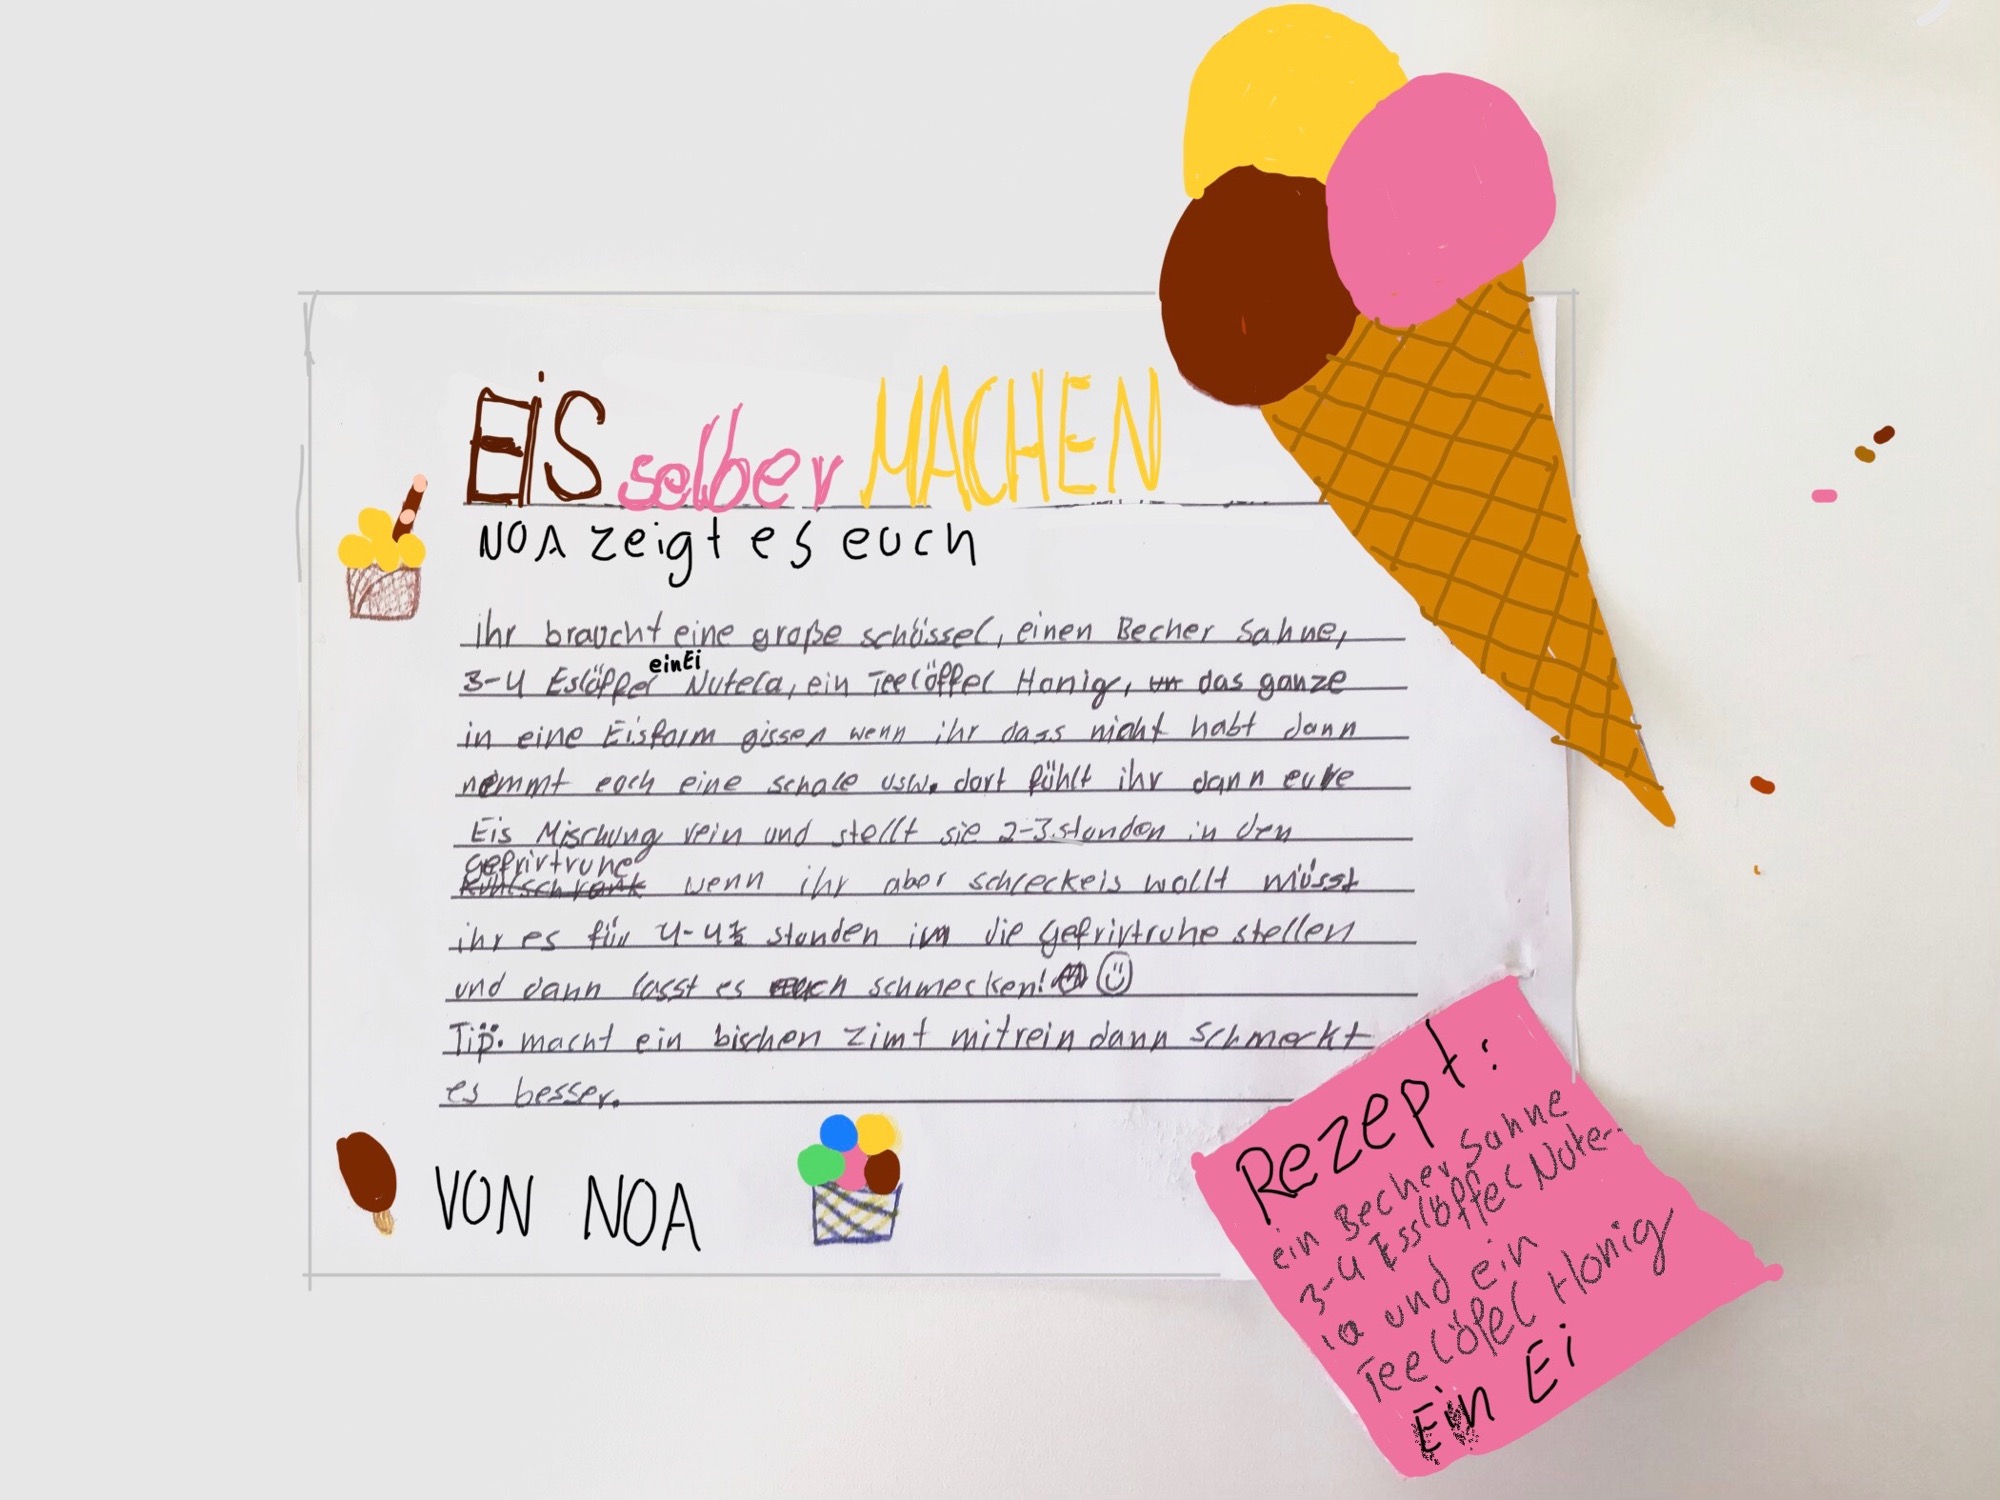 EiS selber MACHEN
NOA zeigt es euch
ihr braucht eine große schüssel, einen Becher Sahne,
einEi
3-4 Eslöffel Nutela, ein Teelöffel Honig, un das ganze
in eine Eisform gissen wenn ihr dass nicht habt dann
nemmt euch eine schale usw. dort fühlt ihr dann eure
Eis Mischung rein und stellt sie 2-3 stunden in den
gefrirtruhe
Kühlschrank wenn ihr aber schleckeis wollt müsst
ihr es für 4-4½ stunden in die gefrirtruhe stellen
und dann lasst es euch schmecken!
Tip: macht ein bischen zimt mit rein dann schmeckt
es besser.
VON NOA
Rezept:
ein Becher Sahne
3-4 Esslöffel Nute-
la und ein
Teelöfel Honig
Ein Ei